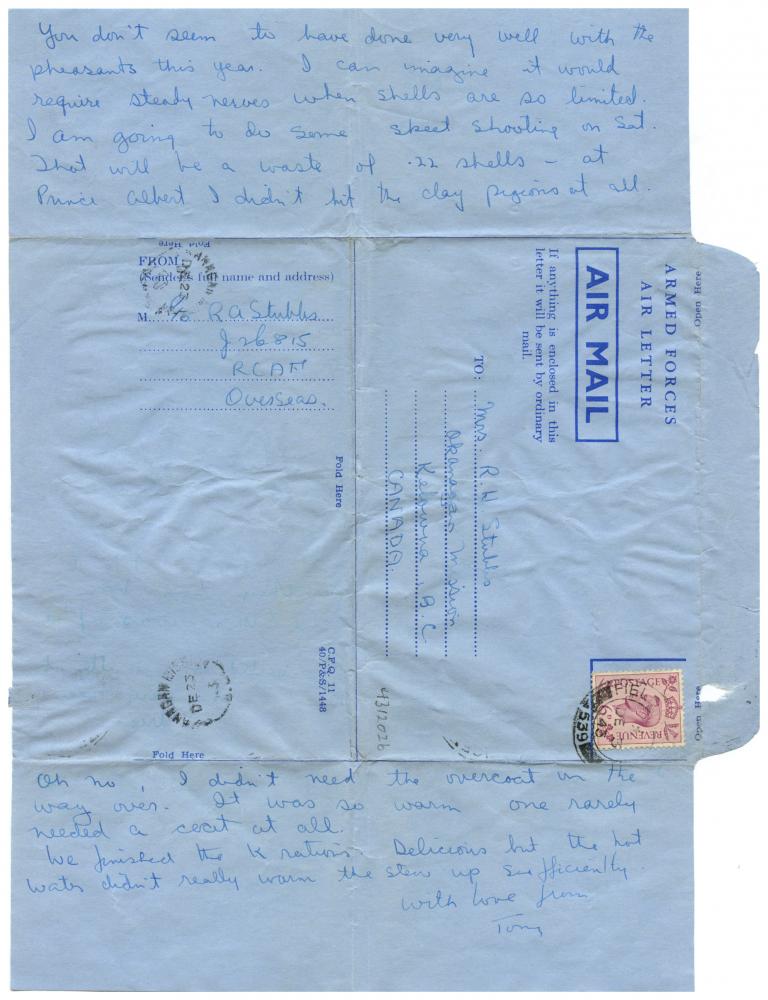 You don't seem to have done very well with the
pheasants this year. I can imagine it would
require steady nerves when shells are so limited.
I am going to do some skeet shooting on Sat.
That will be a waste of .22 shells – at
Prince Albert I didn't hit the clay pigeons at all.
Fold Here
FROM:
(Sender's full name and address)
M. P/o R A Stubbs
J26815
RCAF
Overseas.
Fold Here
C.P.Q. 11
40/P&S/1448
DE 23
Fold Here
Open Here
ARMED FORCES
AIR LETTER
AIR MAIL
If anything is enclosed in this
letter it will be sent by ordinary
mail.
TO: Mrs. R. H Stubbs
Okanagan Mission
Kelowna, B.C
CANADA.
POSTAGE
REVENUE
FIEL
539
Open Here
4312026
Oh no, I didn't need the overcoat on the
way over. It was so warm one rarely
needed a coat at all.
We finished the K rations. Delicious but the hot
water didn't really warm the stew up sufficiently.
With love from
Tony